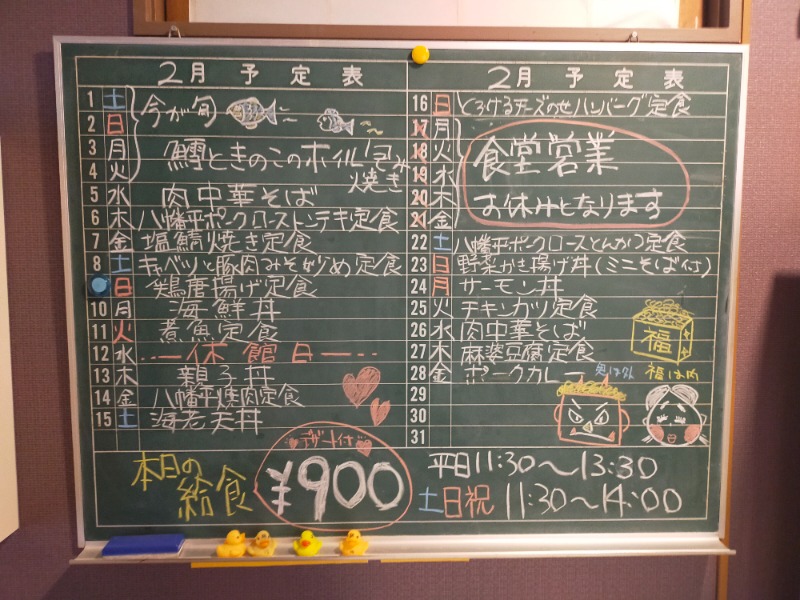 2月 予定表
1 土 今が旬
2 日
3 月 鱈ときのこのホイル包み
4 火 焼き
5 水 肉中華そば
6 木 八幡平ポークローストンテキ定食
7 金 塩鯖焼き定食
8 土 キャベツと豚肉みそ炒め定食
日 鶏唐揚げ定食
10 月 海鮮丼
11 火 煮魚定食
12 水 ・・・ー休館日ー・・・
13 木 親子丼
14 金 八幡平焼肉定食
15 土 海老天丼
2月 予定表
16 日 とろけるチーズのせハンバーグ定食
17 月
18 火 食堂営業
19 水
20 木 お休みとなります
21 金
22 土 八幡平ポークロースとんかつ定食
23 日 野菜かき揚げ丼(ミニそば付)
24 月 サーモン丼
25 火 チキンカツ定食
26 水 肉中華そば
27 木 麻婆豆腐定食
28 金 ポークカレー
29
30
31
福
鬼は外 福は内
本日の給食
デザート付
¥900
平日11:30〜13:30
土日祝 11:30〜14:00